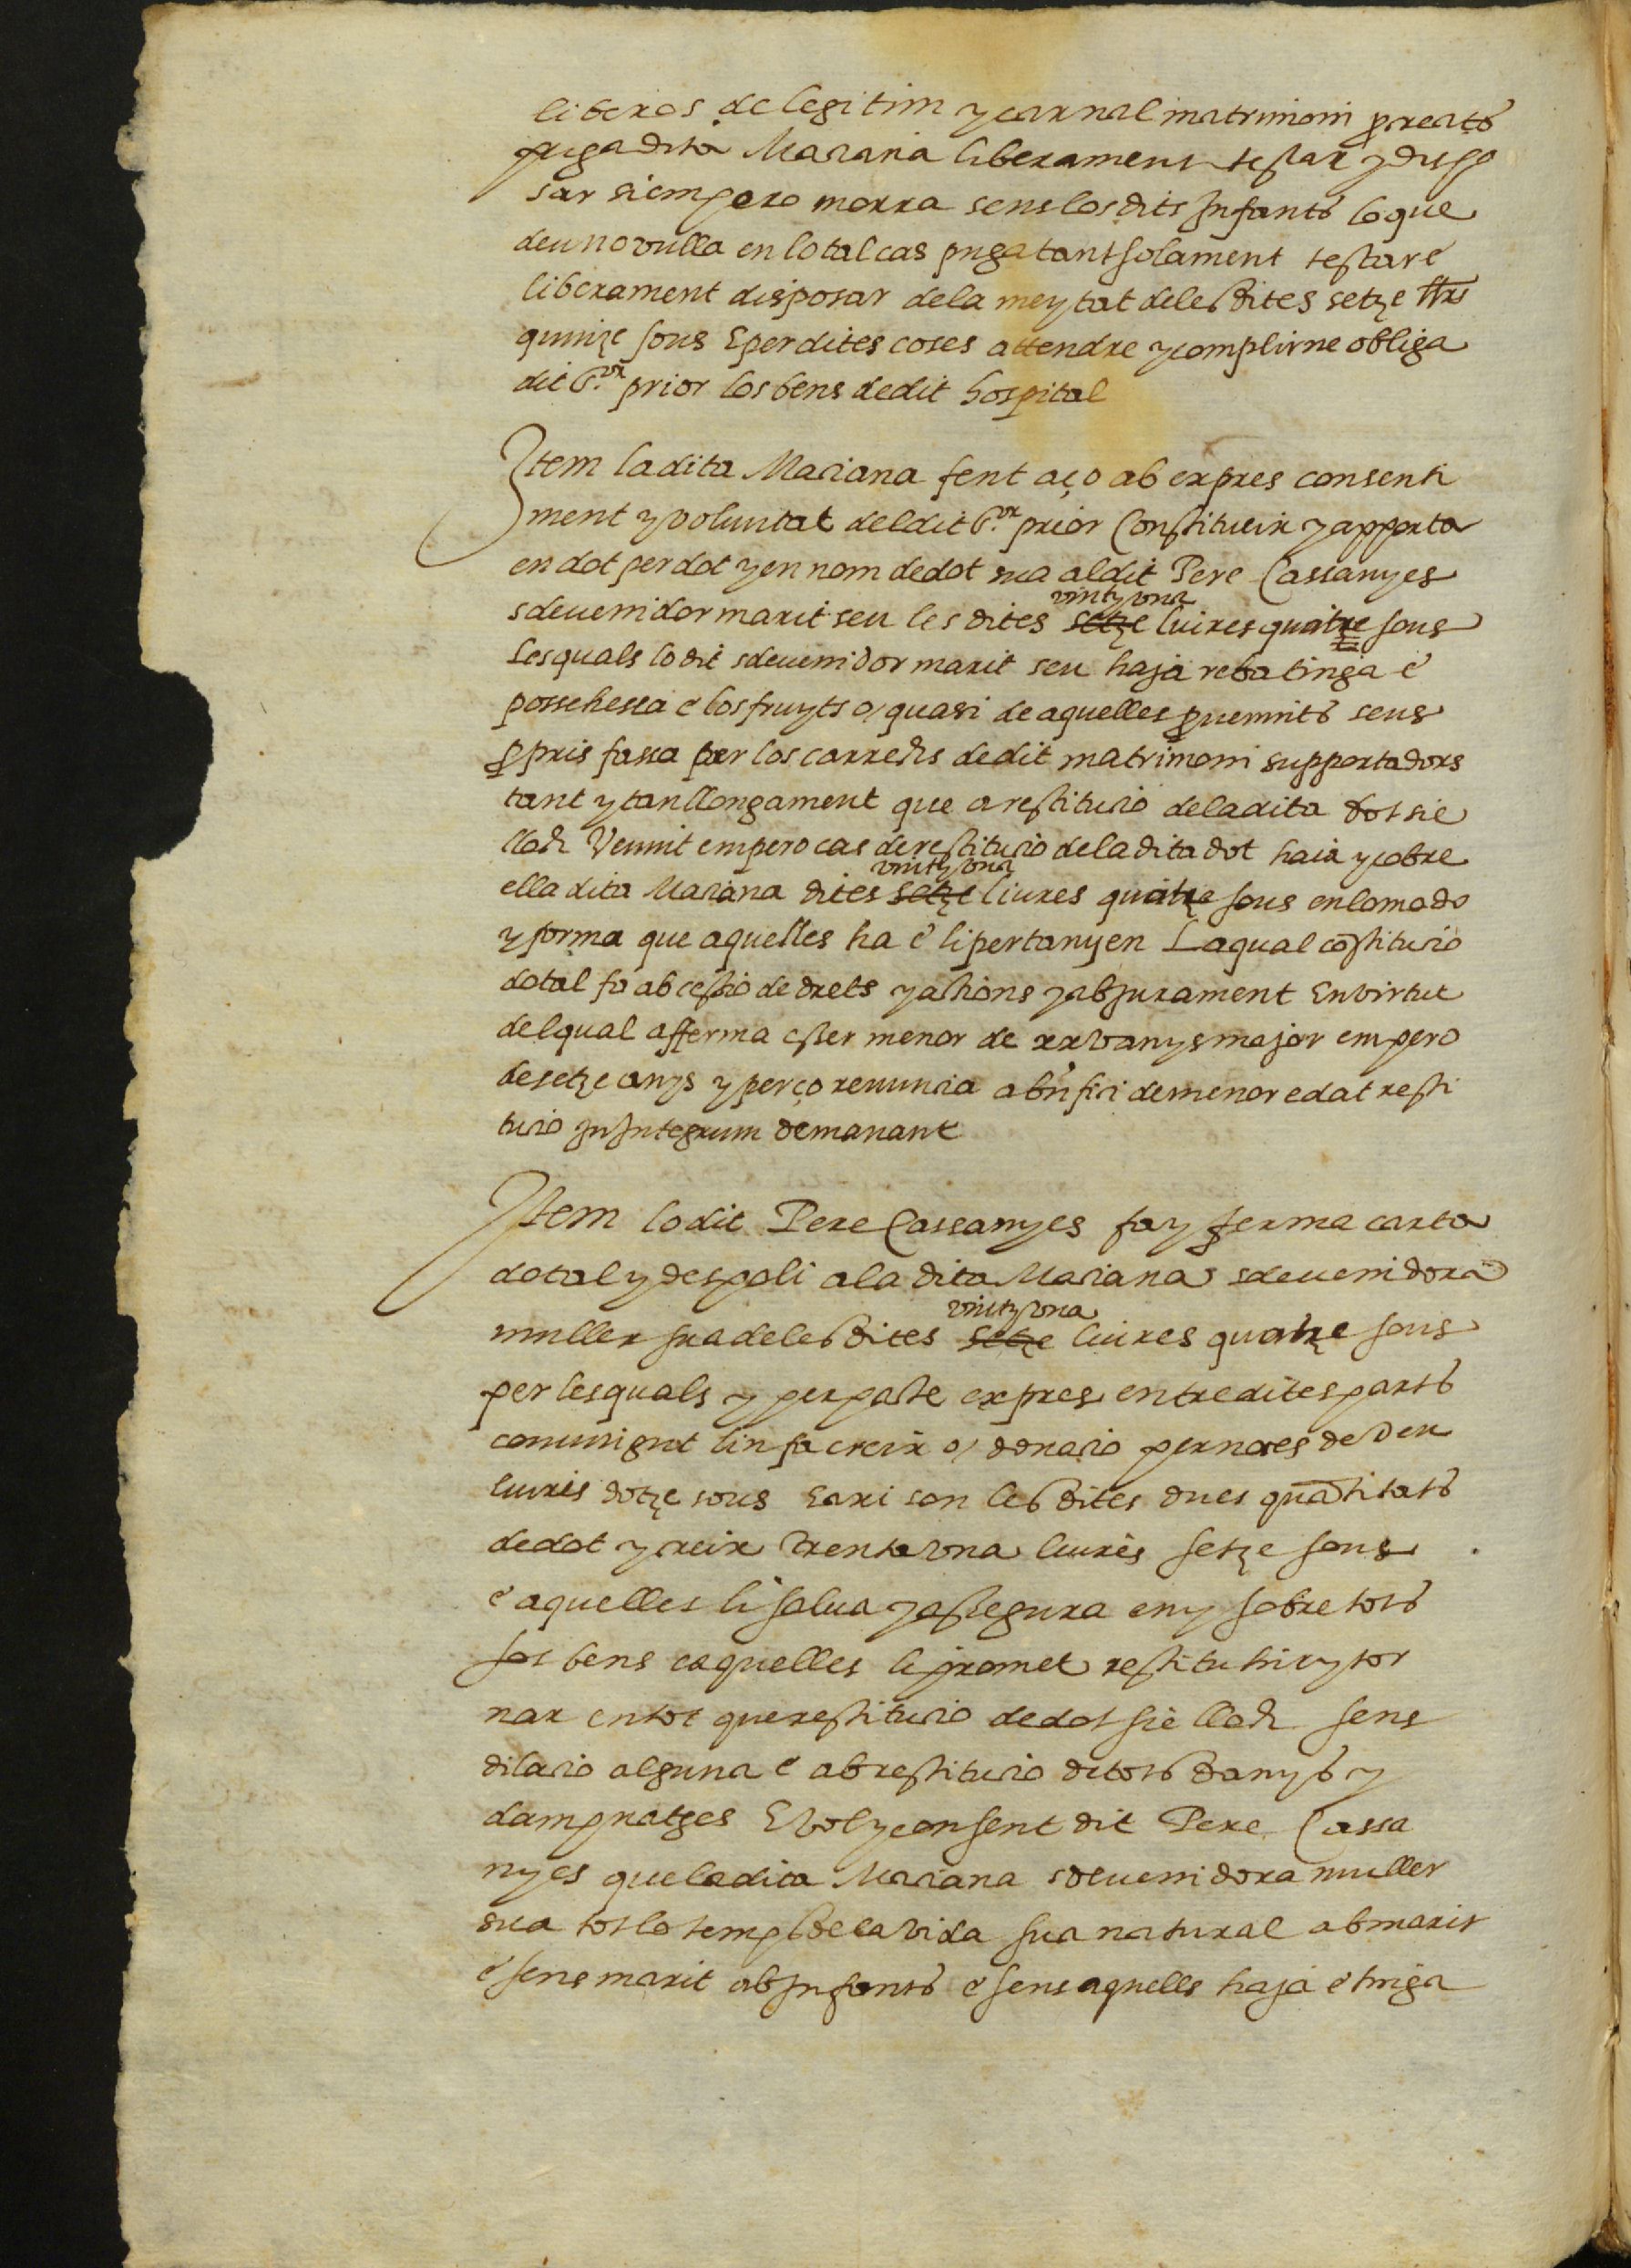 liberos de legitim y carnal matrimoni ꝓcreats
puga dita Mariana liberament testar y dispo
sar si empero morra sens los dits Infants lo que
deu no vulla en lo tal cas puga tant solament testar e
liberament disposar de la meytat de les dites setze llrs
quinze sous E per dites coses attendre y complir ne obliga
dit Sor. prior los bens de dit hospital
Item la dita Mariana fent aço ab expres consenti
ment y voluntat del dit Sor. prior Constitueix y apporta
en dot per dot y en nom de dot sua al dit Pere Cassanyes
sdevenidor marit seu les dites setze vint y una liures quatre sous
Les quals lo dit sdevenidor marit seu haja reba tinga e
possehesca e los fruyts o, quasi de aquelles ꝓvenints seus
ꝓpris fassa per los carrechs de dit matrimoni supportadors
tant y tan llongament que a restitucio de la dita dot sie
lloch Venint empero cas de restitucio de la dita dot haia y cobre
ella dita Mariana dites setze vint y una liures quatre sous en lo modo
y forma que aquelles ha e li pertanyen La qual cōstitucio
dotal fa ab cessio de drets y actions y ab jurament En virtut
del qual afferma esser menor de xxv anys major empero
de setze anys y per ço renuncia a bñfici de menor edat resti
tucio In Integrum demanant
Item lo dit Pere Cassanyes fa y ferma carta
dotal y de spoli a la dita Mariana sdevenidora
muller sua de les dites setze vint y una liures quatre sous
per les quals y per pacte expres entre dites parts
convingut lin fa creix o, donacio per noces de deu
liures dotze sous E axi son les dites dues quātitats
de dot y creix trenta una liures setze sous
e aquelles li salva y assegura en y sobre tots
sos bens e aquelles li promet restituhir y tor
nar en tot que restitucio de dot sie lloch sens
dilacio alguna e ab restitucio de tots danys y
dampnatges E vol y consent dit Pere Cassa
nyes que la dita Mariana sdevenidora muller
sua tot lo temps de la vida sua natural ab marit
e sens marit ab Infants e sens aquells haja e tinga